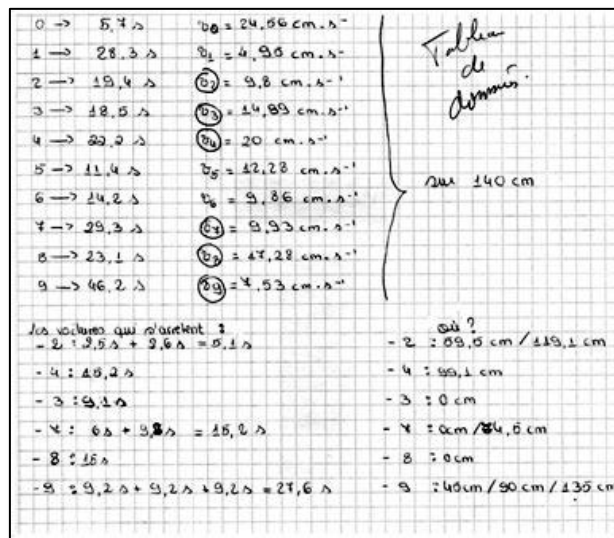 0 → 5,7 s v0 = 24,56 cm.s⁻¹
1 → 28,3 s v1 = 4,95 cm.s⁻
2 → 19,4 s v2 = 9,8 cm.s⁻¹
3 → 18,5 s v3 = 14,89 cm.s⁻¹
4 → 22,2 s v4 = 20 cm.s⁻¹
5 → 11,4 s v5 = 12,28 cm.s⁻¹
6 → 14,2 s v6 = 9,86 cm.s⁻¹
7 → 29,3 s v7 = 9,93 cm.s⁻¹
8 → 23,1 s v8 = 17,28 cm.s⁻¹
9 → 46,2 s v9 = 7,53 cm.s⁻¹
Tableau
de
données.
sur 140 cm
les voitures qui s'arrêtent :
- 2 : 2,5 s + 2,6 s = 5,1 s
- 4 : 15,2 s
- 3 : 9,1 s
- 7 : 6 s + 9,2 s = 15,2 s
- 8 : 15 s
- 9 : 9,2 s + 9,2 s + 9,2 s = 27,6 s
où ?
- 2 : 59,5 cm / 119,1 cm
- 4 : 99,1 cm
- 3 : 0 cm
- 7 : 0 cm / cm
- 8 : 0 cm
- 9 : 45 cm / 90 cm / 135 cm